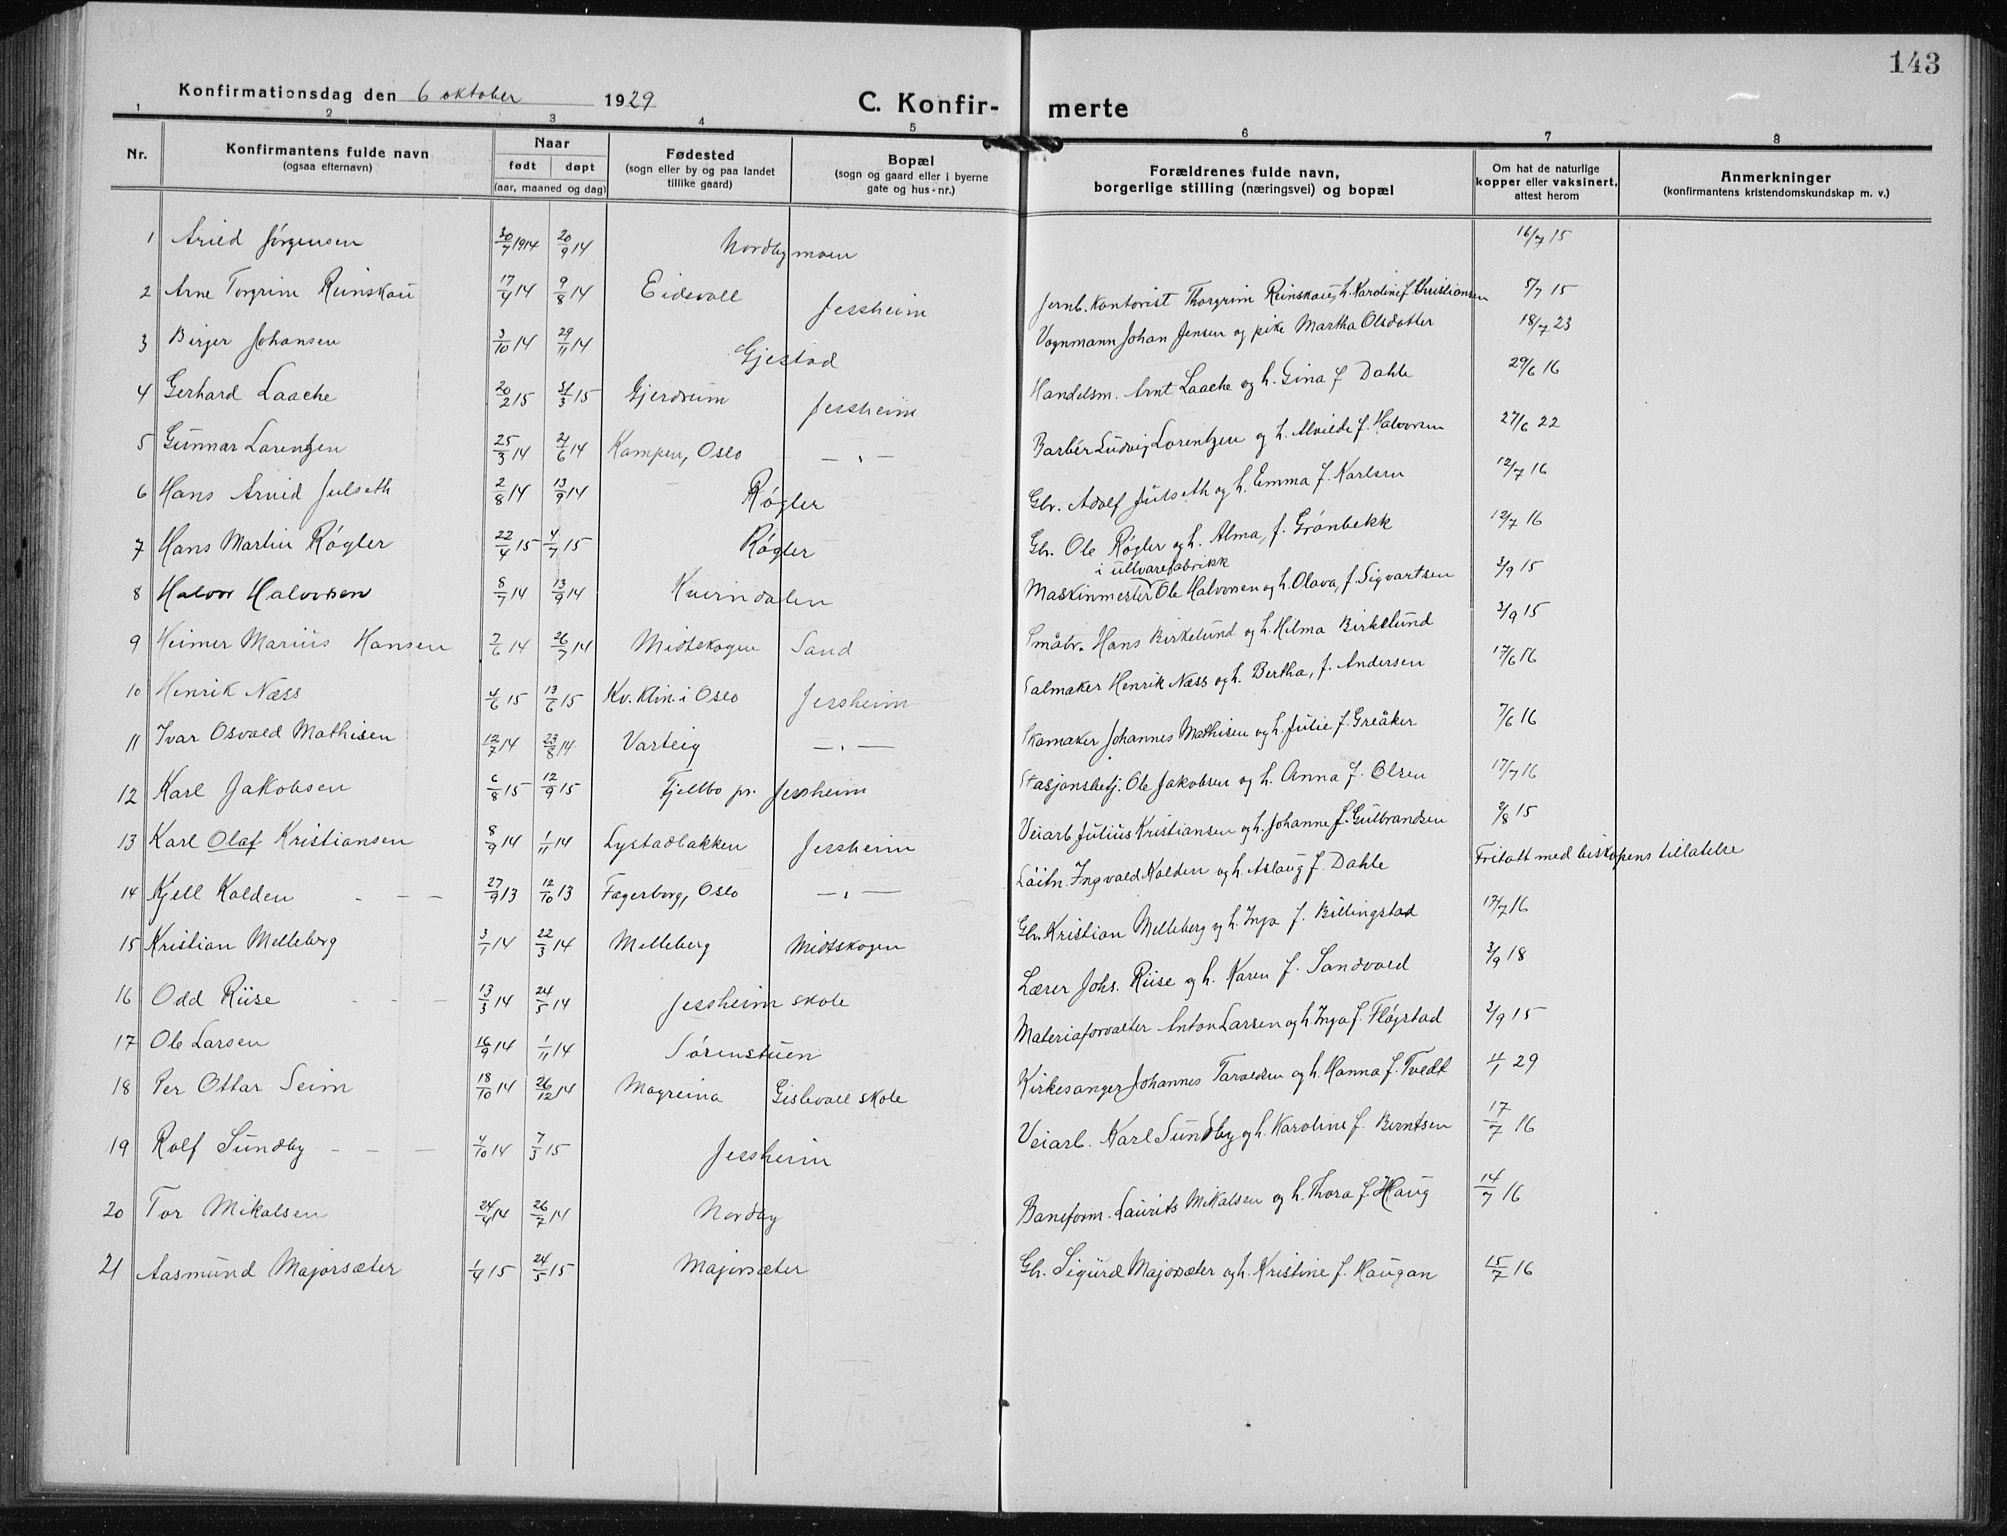 143
Konfirmationsdag den 6 oktober 1929
C. Konfir- merte
1 2 3 4 5 6 7 8
Nr.
Konfirmantens fulde navn
(ogsaa efternavn)
Naar
født døpt
(aar, maaned og dag)
Fødested
(sogn eller by og paa landet
tillike gaard)
Bopæl
(sogn og gaard eller i byerne
gate og hus-nr.)
Forældrenes fulde navn,
borgerlige stilling (næringsvei) og bopæl
Om hat de naturlige
kopper eller vaksinert,
attest herom
Anmerkninger
(konfirmantens kristendomskundskap m. v.)
1 Arild Jørgensen 30/7 1914 20/9 14 Nordbymoen 16/7 15
2 Arne Torgrim Reinskau 17/4 14 9/8 14 Eidsvoll Jessheim Jernb. kontorist Thorgrim Reinskau, h. Karoline f. Christiansen 5/7 15
3 Birger Johansen 3/10 14 29/11 14 Gjestad Vognmann Johan Jensen og pike Martha Olsdatter 18/7 23
4 Gerhard Laache 20/2 15 31/3 15 Gjerdrum Jessheim Handelsm. Arnt Laache og h. Gina f. Dahle 29/6 16
5 Gunnar Lorentzen 25/3 14 21/6 14 Kampen, Oslo — " — Barbér Ludvig Lorentzen og h. Alvilde f. Halvorsen 27/6 22
6 Hans Arvid Julseth 2/8 14 13/9 14 Røgler Gbr. Adolf Julseth og h. Emma f. Karlsen 12/7 16
7 Hans Martin Røgler 22/4 15 4/7 15 Røgler Gbr. Ole Røgler og h. Alma, f. Grønbekk 12/7 16
i ullvarefabrikk
8 Halvor Halvorsen 8/7 14 13/9 14 Kverndalen Maskinmester Ole Halvorsen og h. Olava, f. Sigvartsen 3/9 15
9 Heimer Marius Hansen 7/6 14 26/7 14 Midtskogen Sand Småbr. Hans Birkelund og h. Hilma Birkelund 3/9 15
10 Henrik Næss 4/6 15 13/6 15 Kv. klin. i Oslo Jessheim Salmaker Henrik Næss og h. Bertha, f. Andersen 17/6 16
11 Ivar Osvald Mathisen 12/7 14 23/8 14 Varteig — " — Skomaker Johannes Mathisen og h. Julie f. Greåker 7/6 16
12 Karl Jakobsen 6/8 15 12/9 15 Fjellbo pr. Jessheim Stasjonsbetj. Ole Jakobsen og h. Anna f. Olsen 17/7 16
13 Karl Olaf Kristiansen 8/9 14 1/11 14 Lystadbakken Jessheim Veiarb. Julius Kristiansen og h. Johanne f. Gulbrandsen 3/8 15
14 Kjell Kolden - - - 27/9 13 12/10 13 Fagerborg, Oslo — " — Løitn. Ingvald Kolden og h. Aslaug f. Dahle Fritatt med biskopens tillatelse
15 Kristian Melleberg 3/1 14 22/3 14 Melleberg Midtskogen Gbr. Kristian Melleberg og h. Inga f. Billingstad 17/7 16
16 Odd Riise - - - 13/3 14 24/5 14 Jessheim skole Lærer Johs. Riise og h. Karen f. Sandvold 3/9 18
17 Ole Larsen 16/9 14 1/11 14 Sørenstuen Materialforvalter Anton Larsen og h. Inga f. Fløgstad 3/9 15
18 Per Ottar Seim 18/10 14 26/12 14 Mogreina Gislevoll skole Kirkesanger Johannes Taraldsen og h. Hanna f. Tvedt 4/1 29
19 Rolf Sundby - - - 4/10 14 7/3 15 Jessheim Veiarb. Karl Sundby og h. Karoline f. Berntsen 17/7 16
20 Tor Mikalsen 24/4 14 26/7 14 Nordby Baneform. Laurits Mikalsen og h. Thora f. Haug 14/7 16
21 Aasmund Majorsæter 1/4 15 24/5 15 Majorsæter Gb. Sigurd Majorsæter og h. Kristine f. Haugan 15/7 16